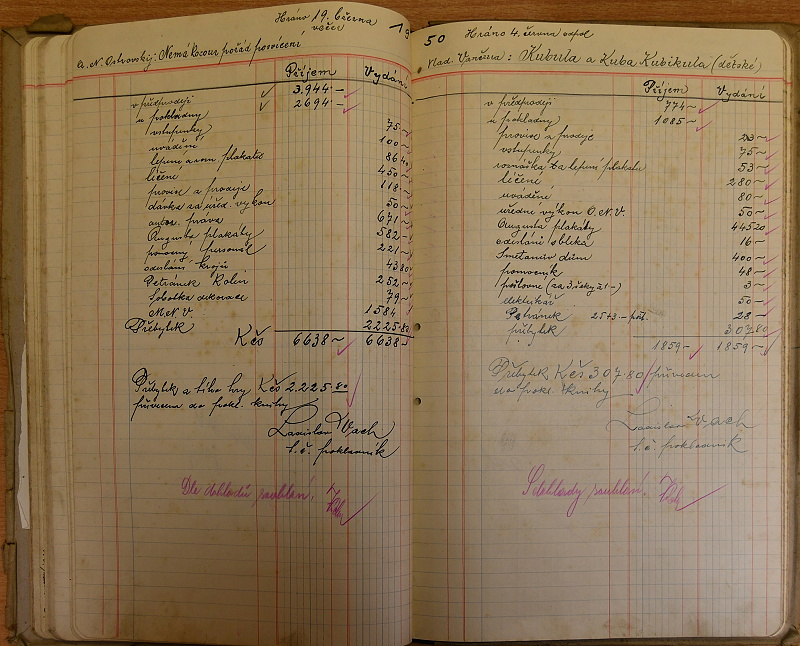 Hráno 19. června 19
večer
A. N. Ostrovskij: Nemá kocour pořád posvícení
Příjem Vydání
v předprodeji 3.944.–
u pokladny 2694.–
vstupenky 75.–
uvádění 100.–
lepení a rozn. plakátů 86 40
líčení 450.–
provise z prodeje 118.–
dávka za úřed. výkon 50.–
autor. práva 671.–
Augusta plakáty 582.–
pomocný personál 221.–
odeslání krojů 43 80
Petránek Kolín 252.–
Sobotka dekorace 79.–
M.N.V. 1584
Přebytek 2225.80
Kčs 6638.– 6638.–
Přebytek z této hry Kčs 2.225.80
převeden do pokl. knihy
Ladislav Vach
t.č. pokladník
Dle dokladů souhlasí.
50 Hráno 4. června odpol
Vlad. Vančura: Kubula a Kuba Kubikula (dětské)
Příjem Vydání
v předprodeji 774.–
u pokladny 1085.–
provise z prodeje 23.–
vstupenky 75.–
roznáška za lepení plakátů 53.–
líčení 280.–
uvádění 80.–
úřední výkon O.N.V. 50.–
Augusta plakáty 445 20
odeslání obleků 16.–
Smetanův dům 400.–
pomocník 48.–
poštovné (za 3. šeky à 1.–) 3.–
elektrikář 50.–
Petránek 25+3.– pošt. 28.–
přebytek 307 80
1859.– 1859.–
Přebytek Kčs 307.80 převeden
do pokl. knihy
Ladislav Vach
t.č. pokladník
S doklady souhlasí.